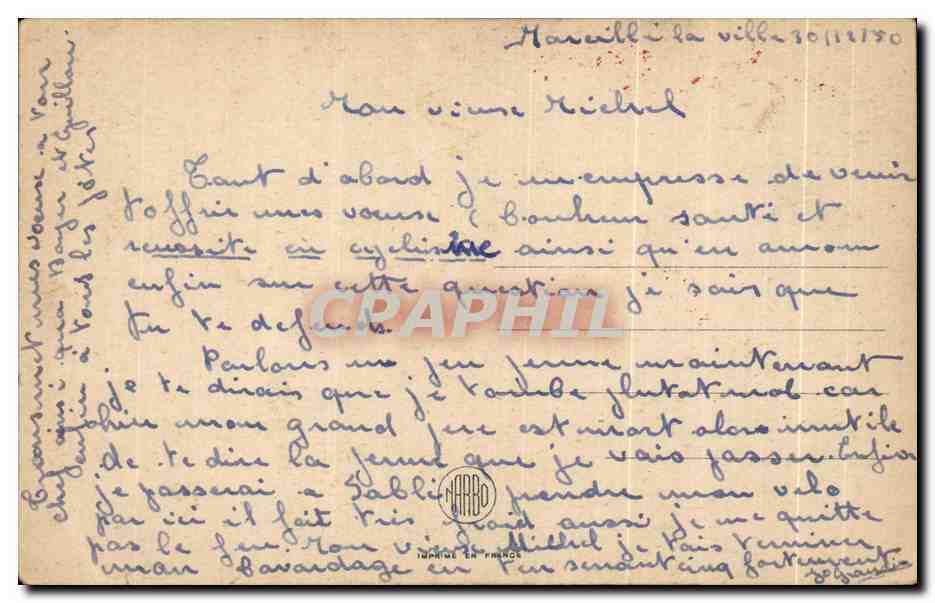 Marcillé la ville 30/12/50
Mon vieux Michel
Tout d'abord je m'empresse de venir
t'offrir mes voeuse ( bonheur santé et
reuosite en cyclisme ainsi qu'en amour
enfin sur cette question je sais que
tu te defends.
Parlons un peu perme maintenant
je te dirais que je tombe plutat mal car
mon grand pere est mort alors inutile
de te dire la perme que je vais passer. Enfin
je passerai a Sablé prendre mon velo
par ici il fait très froid aussi je ne quitte
pas le feu. Mon vieux Michel je vais terminer
mon bavardage en t'en serrant cinq fortement
Transmet mes voeuse a ton
chef ainsi qua Boyer et
enfin à tous les potes
CRAPHIL
NARBO
IMPRIMÉ EN FRANCE